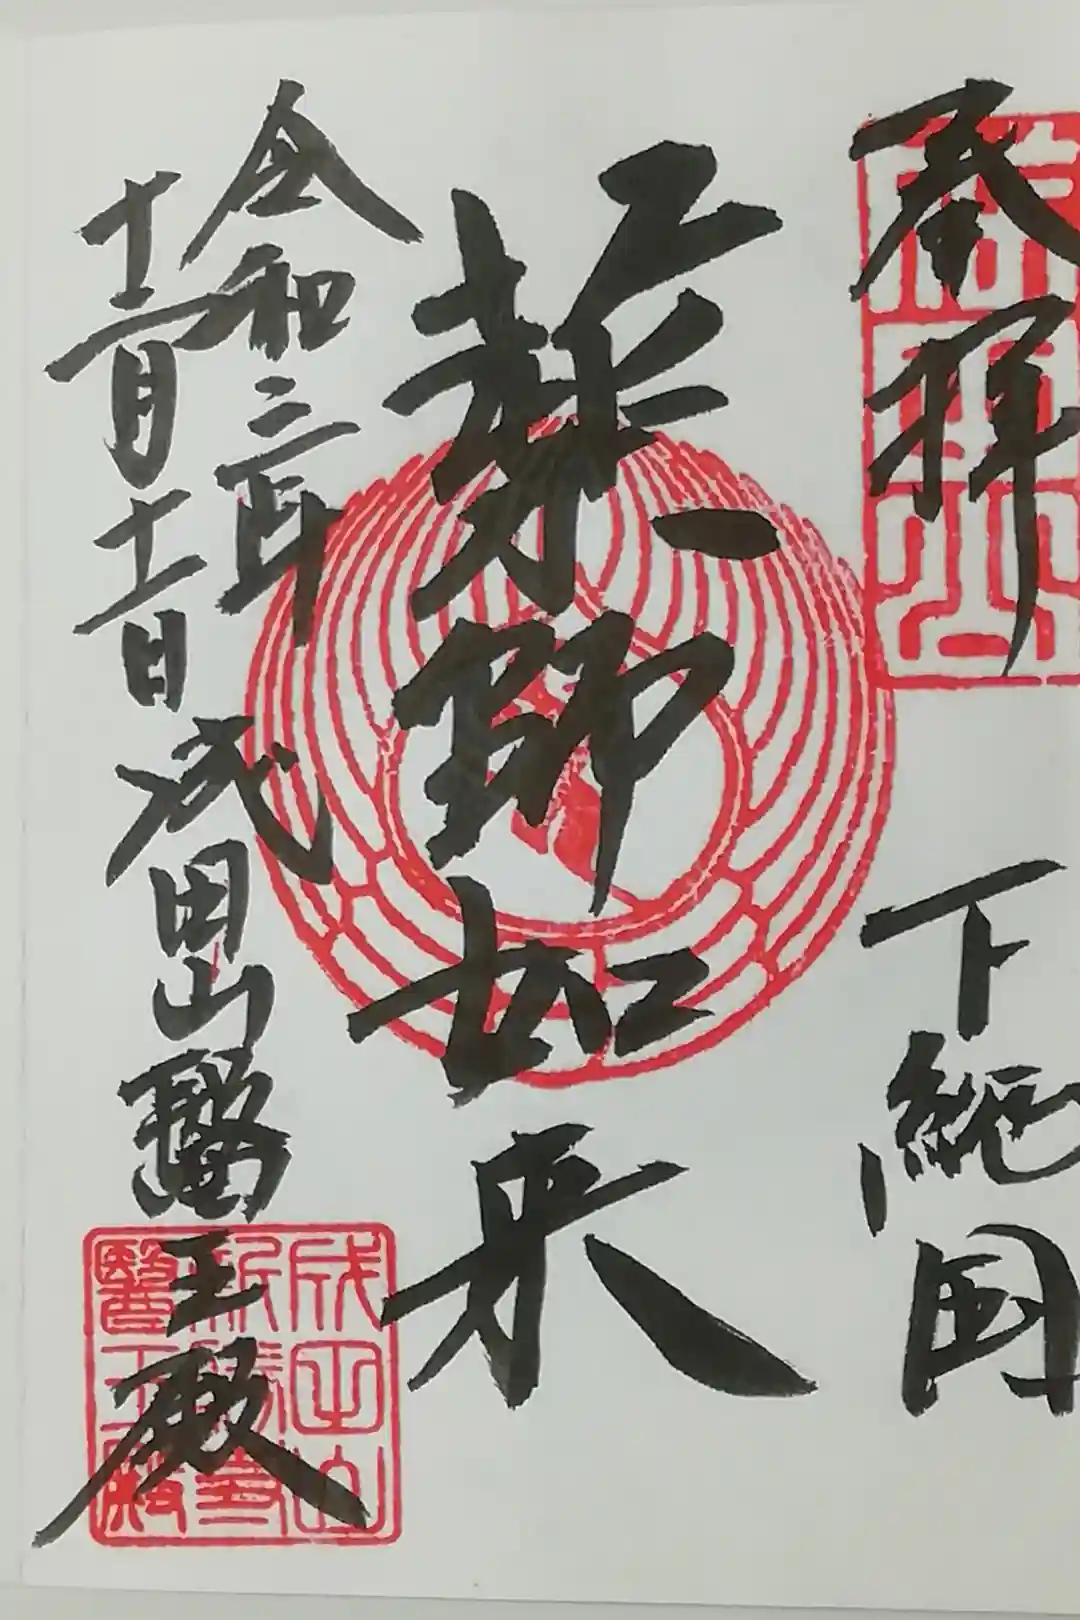 奉拝
下総国
薬師如来
令和三年
十二月十二日
成田山醫王殿
成田山
新勝寺
醫王殿